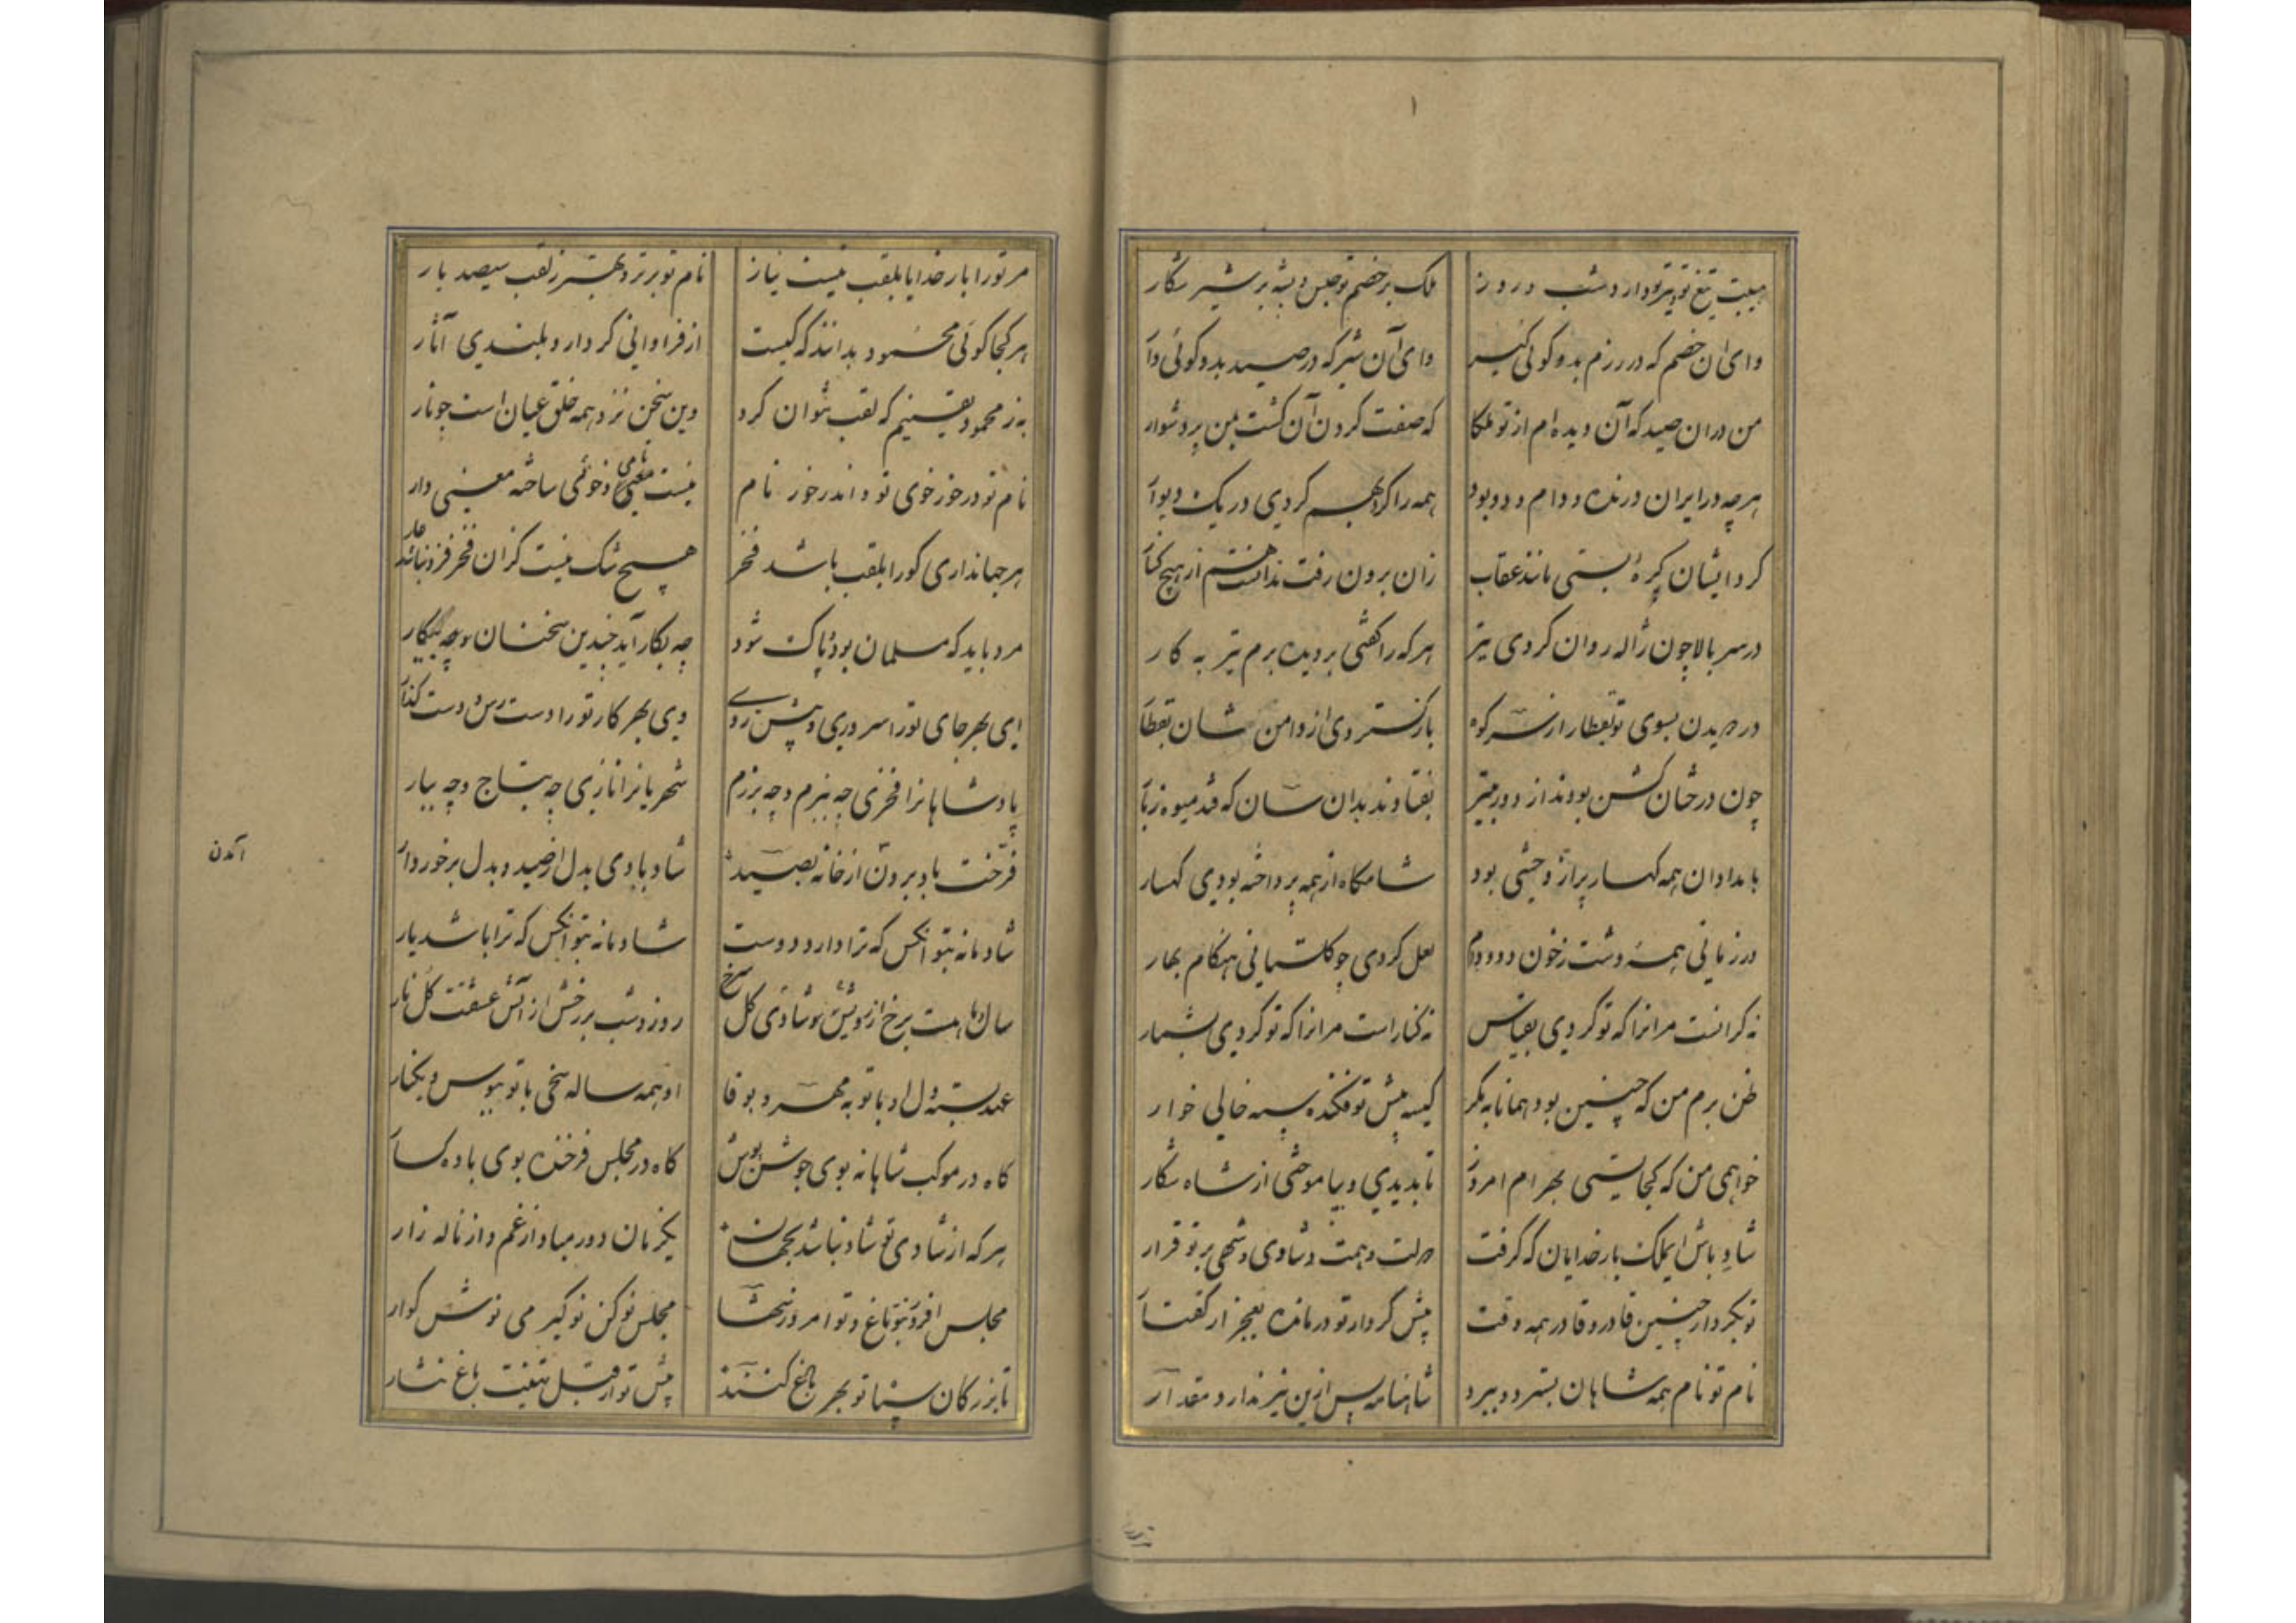 هیبت تیغ تو و تیر تو دارد شب و روز
ملک بر خصم تو حبس و بیشه بر شیر شکار
وای ان خصم که در رزم بدو کوئی کیر
وای آن شیر که در صید بدو کوئی دآ
من دران صید که آن دیده ام از تو ملکا
که صفت کردن آن کشت بمن بر دشوار
هر چه در ایران درنده و دام و دد بود
همه را کرد بهم کردی در یک دیوآ
کرد ایشان پره بستی مانند عقاب
زان برون رفت ندانست هم از هیچ کنآ
در سر بالا چون ژاله روان کردی تیر
هر که را کفتی بر دیده برم تیر به کار
در دویدن بسوی تو بقطار از سر کوه
باز کستردی از دامن شان بقطآ
چون درختان کشن بودند از دور بتیر
بفتادند بدان سان که فتد میوه ز بآ
بامدادان همه کهسار پر از وحشی بود
شامکاه از همه پرداخته بودی کهسار
در زمانی همه دشت ز خون دد و دام
لعل کردی چو کلستانی هنکام بهار
نه کرانست مر انرا که تو کردی بقیاس
نه کنار است مر انرا که تو کردی بشمار
ظن برم من که چنین بود همانا به مکر
کیسه پیش تو فکنده سپه خالی خوار
خواهمی من که کجایستی بهرام امروز
تا بدیدی و بیاموختی از شاه شکار
شاد باش ای ملک بار خدایان که کرفت
دولت و همت و شادی و شهی بر تو قرار
تو بکردار چنین قادر و قادر همه وقت
پیش کردار تو درمانده بعجز از کفتآ
نام تو نام همه شاهان بسترد و ببرد
شاهنامه پس ازین نیز ندارد مقدآر
مر تو را بار خدایا بلقب نیست نیاز
نام تو برتر و بهتر ز لقب سیصد بار
هر کجا کوئی محمود بدانند که کیست
از فراوانی کردار و بلندی آثار
به ز محمود یقینیم که لقب نتوان کرد
وین سخن نزد همه خلق عیان است چو نار
نام تو در خور خوی تو و اندر خور نام
نیست نامی و خوئی ساخته معنی دار
هر جهانداری کو را بلقب باشد فخر
هیچ شک نیست کزان فخر فزون باشد عار
مرد باید که مسلمان بود و پاک شود
چه بکار آید چندین سخنان و چه بیکار
ای بهر جای تو را سروری و پیش روی
وی بهر کار تو را دست رس و دست کذآ
پادشاهانرا فخری چه ببزم و چه برزم
شهریانرا نازی چه بتاج و چه ببار
فرخت باد برون از خانه بصید
شاد بادی بدل از صید و بدل برخوردار
آمدن
شادمانه بتو انکس که ترا دارد دوست
شادمانه بتو انکس که ترا باشد یار
روز و شب بر رخش از آتش عشقت کل نار
عهد بسته دل او با تو به مهر و بوفا
او همه ساله سخی با تو ببوس و بکنار
کاه در موکب شاهانه بوی جوشن پوش
کاه در مجلس فرخنده بوی باده کسآ
هر که از شادی تو شاد نباشد بجهان
یکزمان دور مباد از غم و از ناله زار
مجلس نو کن نو کیر می نوش کوار
تا بزرکان سپاه تو بهر باغ کنند
پیش تو از قبل تهنیت باغ نثار